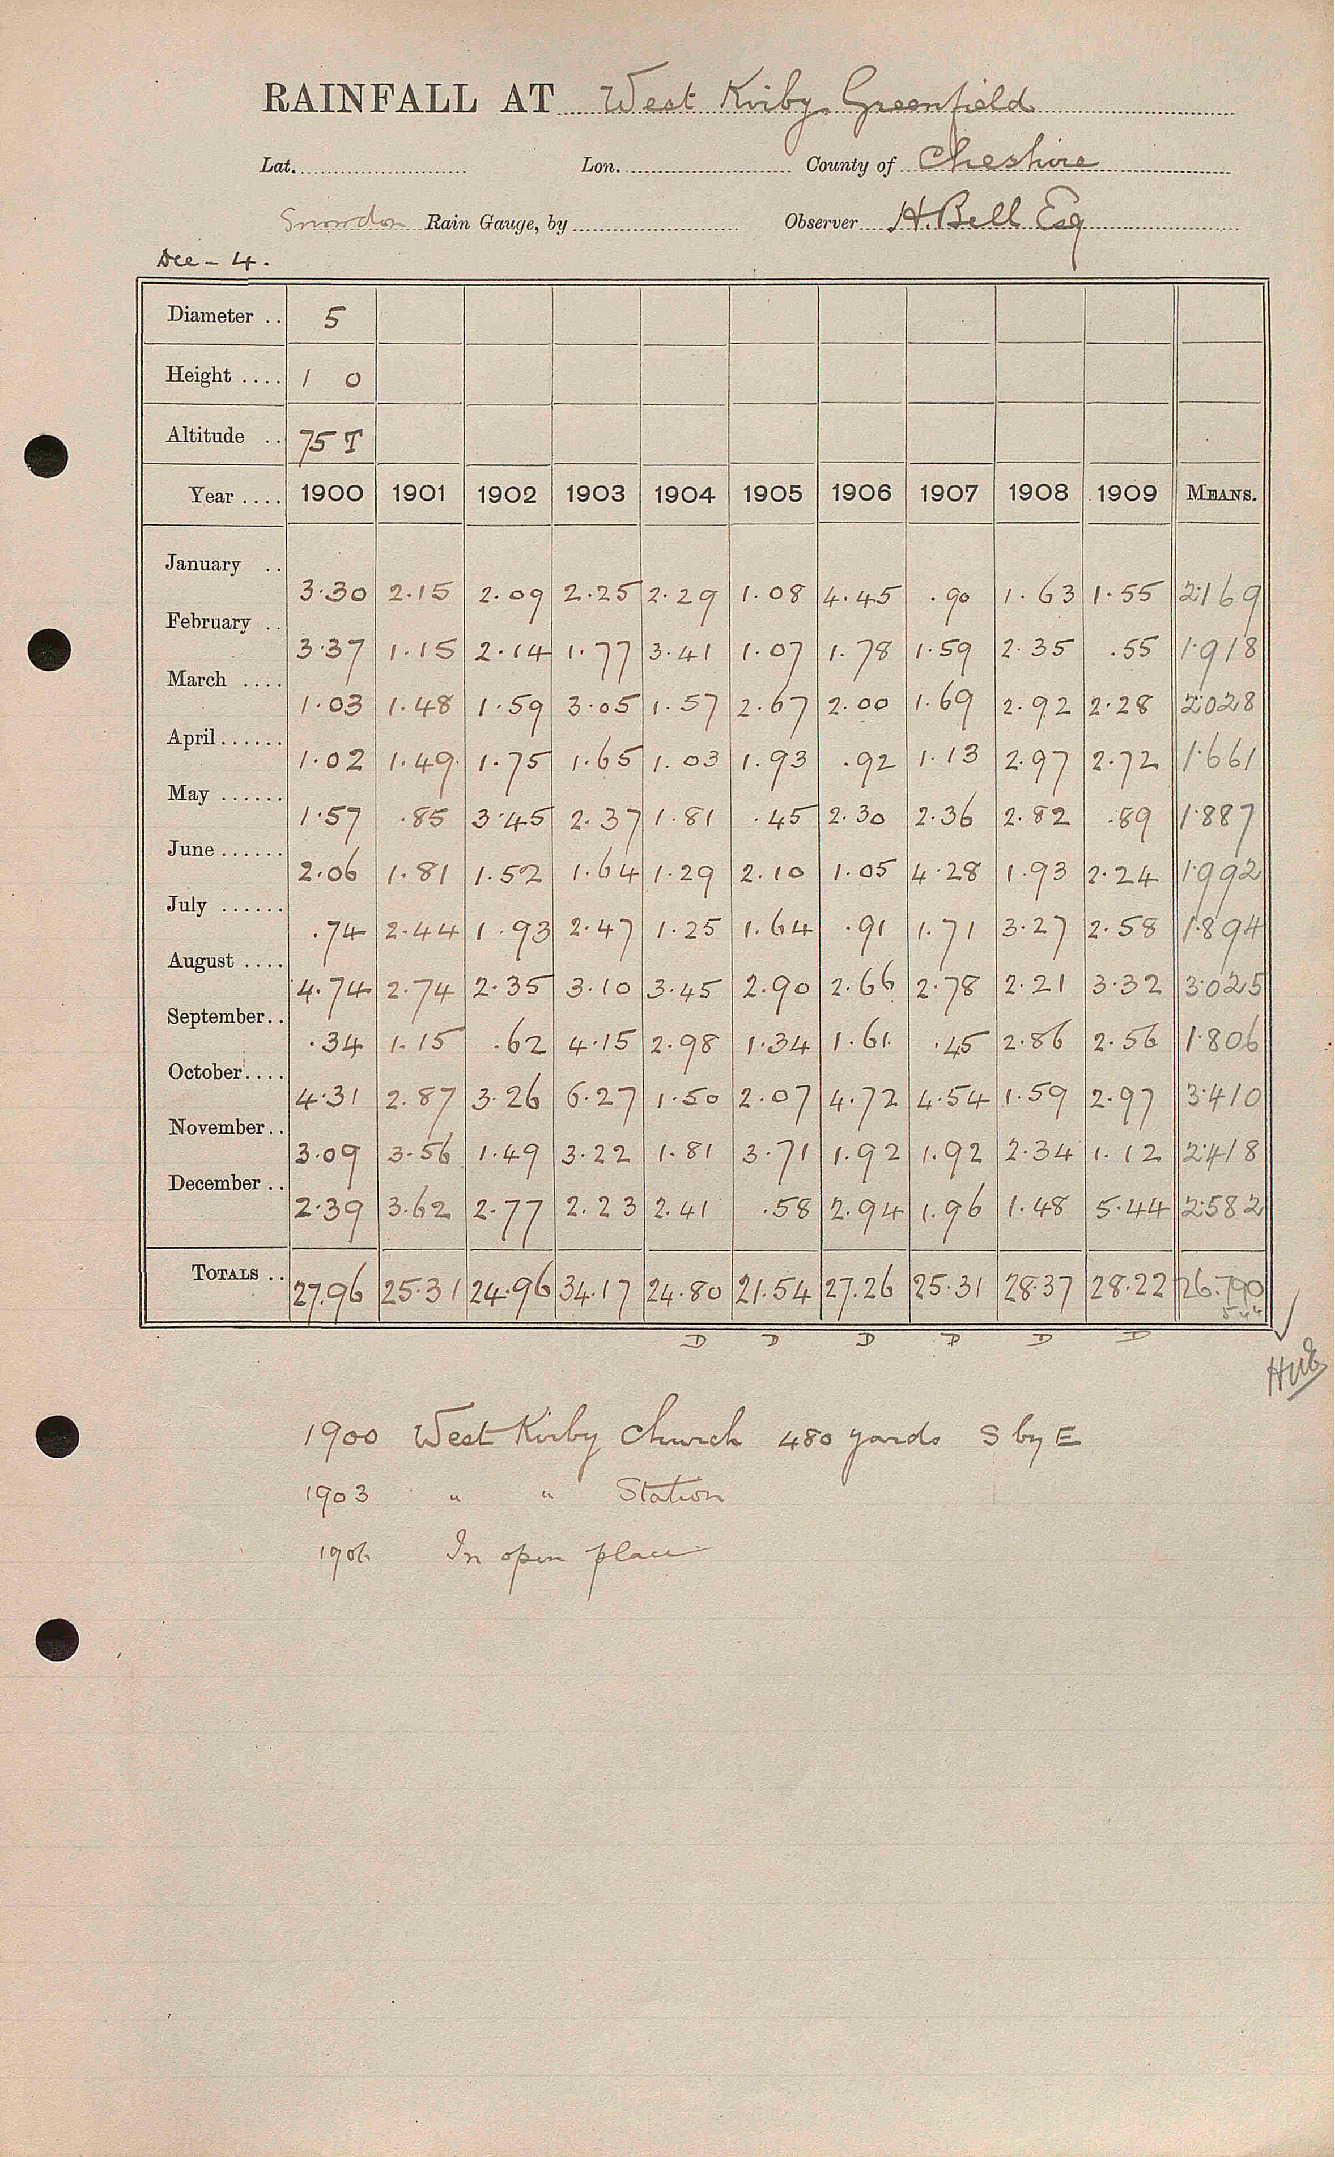 RAINFALL AT West Kirby Greenfield
Lat. Lon. County of Cheshire
Snowdon Rain Gauge, by Observer H. Bell Esq
Dee - 4.
Diameter .. 5
Height .... 1 0
Altitude .. 75 T
Year .... 1900 1901 1902 1903 1904 1905 1906 1907 1908 1909 MEANS.
January .. 3.30 2.15 2.09 2.25 2.29 1.08 4.45 .90 1.63 1.55 2.169
February .. 3.37 1.15 2.14 1.77 3.41 1.07 1.78 1.59 2.35 .55 1.918
March .... 1.03 1.48 1.59 3.05 1.57 2.67 2.00 1.69 2.92 2.28 2.028
April ...... 1.02 1.49 1.75 1.65 1.03 1.93 .92 1.13 2.97 2.72 1.661
May ...... 1.57 .85 3.45 2.37 1.81 .45 2.30 2.36 2.82 .89 1.887
June ...... 2.06 1.81 1.52 1.64 1.29 2.10 1.05 4.28 1.93 2.24 1.992
July ...... .74 2.44 1.93 2.47 1.25 1.64 .91 1.71 3.27 2.58 1.894
August .... 4.74 2.74 2.35 3.10 3.45 2.90 2.66 2.78 2.21 3.32 3.025
September .. .34 1.15 .62 4.15 2.98 1.34 1.61 .45 2.86 2.56 1.806
October .... 4.31 2.87 3.26 6.27 1.50 2.07 4.72 4.54 1.59 2.97 3.410
November .. 3.09 3.56 1.49 3.22 1.81 3.71 1.92 1.92 2.34 1.12 2.418
December .. 2.39 3.62 2.77 2.23 2.41 .58 2.94 1.96 1.48 5.44 2.582
TOTALS .. 27.96 25.31 24.96 34.17 24.80 21.54 27.26 25.31 28.37 28.22 26.790
D D D D D D
1900 West Kirby Church 480 yards S by E
1903 " " Station
1906 In open place